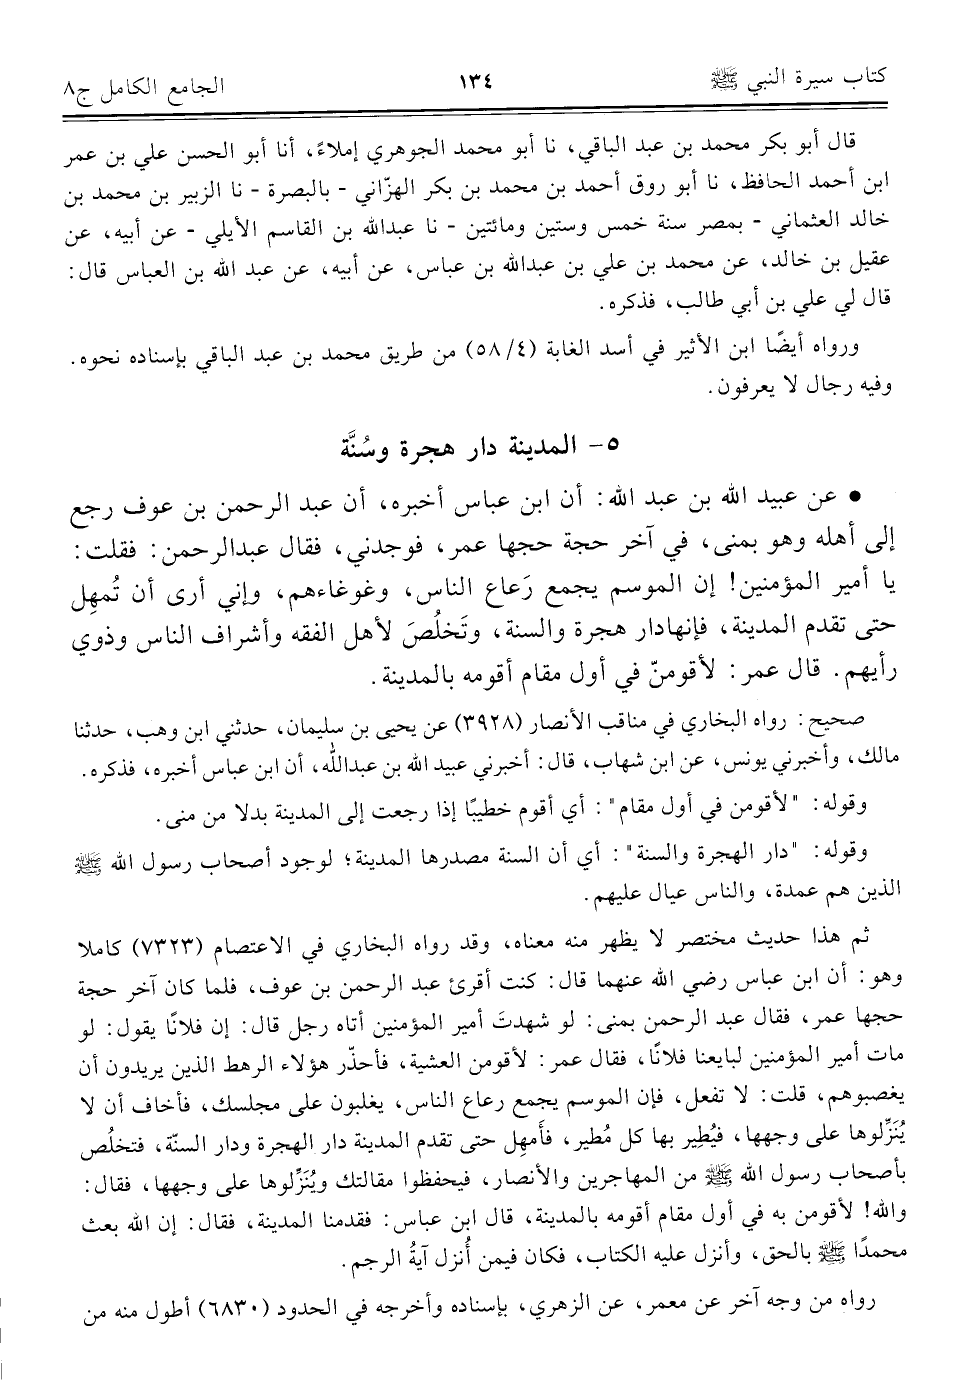 كتاب سيرة النبي ﷺ ١٣٤ الجامع الكامل ج٨
قال أبو بكر محمد بن عبد الباقي، نا أبو محمد الجوهري إملاءً، أنا أبو الحسن علي بن عمر
ابن أحمد الحافظ، نا أبو روق أحمد بن محمد بن بكر الهزّاني - بالبصرة - نا الزبير بن محمد بن
خالد العثماني - بمصر سنة خمس وستين ومائتين - نا عبدالله بن القاسم الأيلي - عن أبيه، عن
عقيل بن خالد، عن محمد بن علي بن عبدالله بن عباس، عن أبيه، عن عبد الله بن العباس قال:
قال لي علي بن أبي طالب، فذكره.
ورواه أيضًا ابن الأثير في أسد الغابة (٥٨/٤) من طريق محمد بن عبد الباقي بإسناده نحوه.
وفيه رجال لا يعرفون.
٥- المدينة دار هجرة وسُنَّة
• عن عبيد الله بن عبد الله: أن ابن عباس أخبره، أن عبد الرحمن بن عوف رجع
إلى أهله وهو بمنى، في آخر حجة حجها عمر، فوجدني، فقال عبدالرحمن: فقلت:
يا أمير المؤمنين! إن الموسم يجمع رَعاع الناس، وغوغاءهم، وإني أرى أن تُمهِل
حتى تقدم المدينة، فإنهادار هجرة والسنة، وتَخلُصَ لأهل الفقه وأشراف الناس وذوي
رأيهم. قال عمر: لأقومنّ في أول مقام أقومه بالمدينة.
صحيح: رواه البخاري في مناقب الأنصار (٣٩٢٨) عن يحيى بن سليمان، حدثني ابن وهب، حدثنا
مالك، وأخبرني يونس، عن ابن شهاب، قال: أخبرني عبيد الله بن عبدالله، أن ابن عباس أخبره، فذكره.
وقوله: "لأقومن في أول مقام": أي أقوم خطيبًا إذا رجعت إلى المدينة بدلا من منى.
وقوله: "دار الهجرة والسنة": أي أن السنة مصدرها المدينة؛ لوجود أصحاب رسول الله ﷺ
الذين هم عمدة، والناس عيال عليهم.
ثم هذا حديث مختصر لا يظهر منه معناه، وقد رواه البخاري في الاعتصام (٧٣٢٣) كاملا
وهو: أن ابن عباس رضي الله عنهما قال: كنت أقرئ عبد الرحمن بن عوف، فلما كان آخر حجة
حجها عمر، فقال عبد الرحمن بمنى: لو شهدتَ أمير المؤمنين أتاه رجل قال: إن فلانًا يقول: لو
مات أمير المؤمنين لبايعنا فلانًا، فقال عمر: لأقومن العشية، فأحذّر هؤلاء الرهط الذين يريدون أن
يغصبوهم، قلت: لا تفعل، فإن الموسم يجمع رعاع الناس، يغلبون على مجلسك، فأخاف أن لا
يُنَزِّلوها على وجهها، فيُطِير بها كل مُطير، فأَمهِل حتى تقدم المدينة دار الهجرة ودار السنّة، فتخلُص
بأصحاب رسول الله ﷺ من المهاجرين والأنصار، فيحفظوا مقالتك ويُنَزِّلوها على وجهها، فقال:
والله! لأقومن به في أول مقام أقومه بالمدينة، قال ابن عباس: فقدمنا المدينة، فقال: إن الله بعث
محمدًا ﷺ بالحق، وأنزل عليه الكتاب، فكان فيمن أُنزل آيةُ الرجم.
رواه من وجه آخر عن معمر، عن الزهري، بإسناده وأخرجه في الحدود (٦٨٣٠) أطول منه من